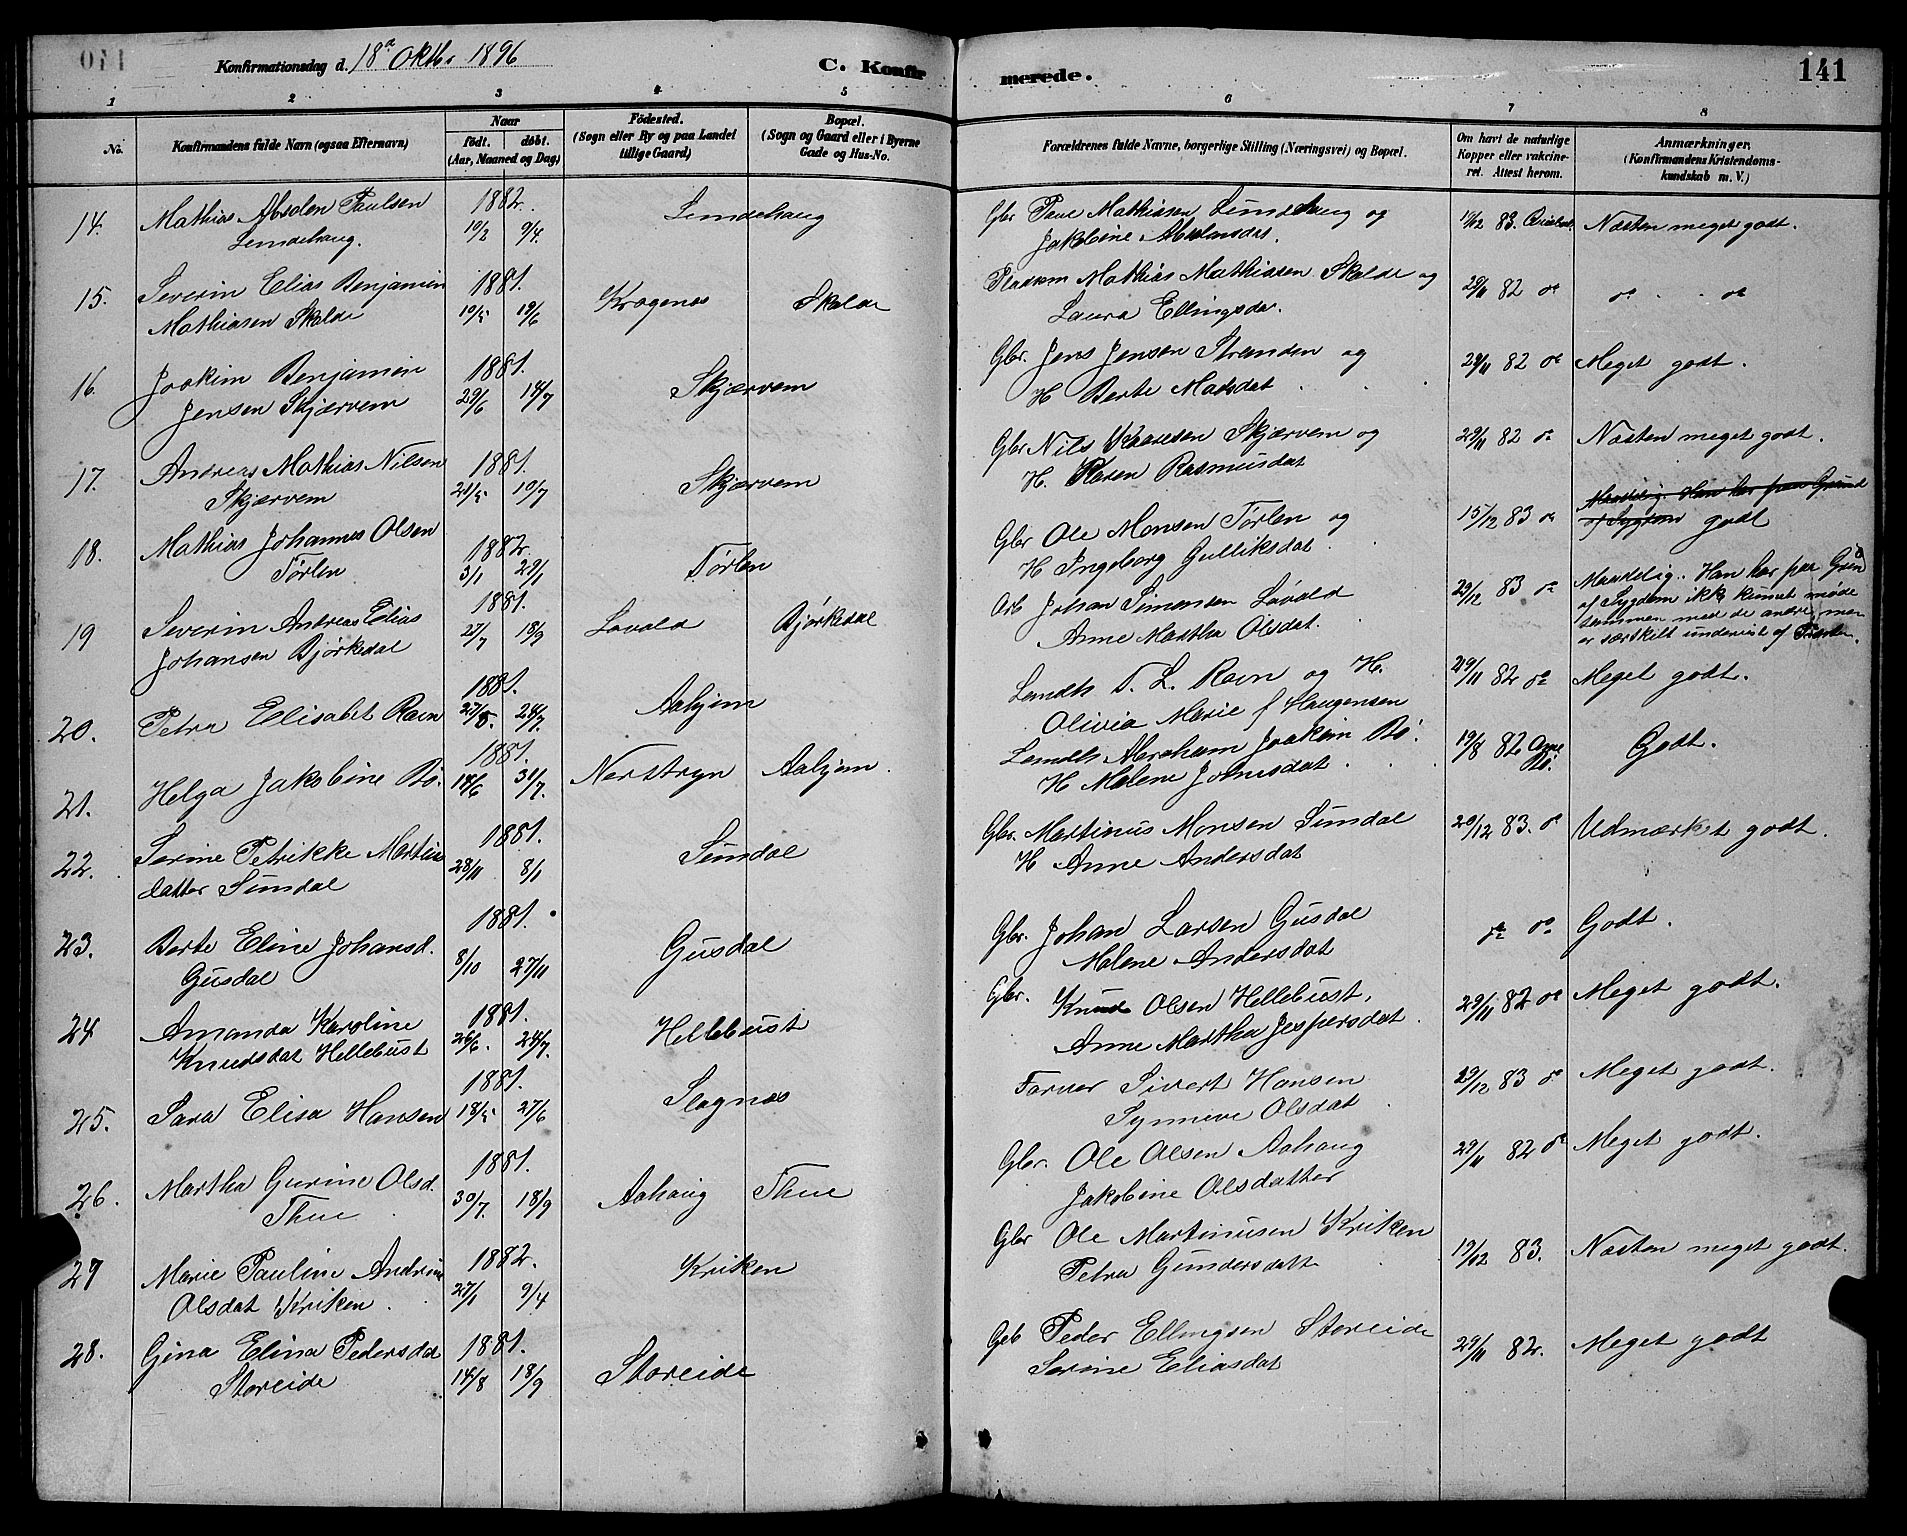 Konfirmationsdag d. 18d Oktbr 1896
C. Konfir
merede.
141
1 2 3 4 5 6 7 8
No.
Konfirmandens fulde Navn (ogsaa Efternavn)
Naar
født. døbt.
(Aar, Maaned og Dag)
Fødested.
(Sogn eller By og paa Landet
tillige Gaard)
Bopæl.
(Sogn og Gaard eller i Byerne
Gade og Hus-No.
Forældrenes fulde Navne, borgerlige Stilling (Næringsvei) og Bopæl.
Om havt de naturlige
Kopper eller vakcine-
ret. Attest herom.
Anmærkninger.
(Konfirmandens Kristendoms-
kundskab m. V.)
14. Mathias Absolon Paulsen 1882. Lundehaug Gbr Mathiasen Lundehaug og 83. Næsten meget godt.
Lundehaug. 10/2 9/4. Jakobine Absalonsdat.
15. Severin Elias Benjamin 1881. Kragenes Skolde Pladsm Mathias Mathiasen Skolde og 29/11 82 do do do
Mathiasen Skolde 10/5 19/6 Laura Ellingsdr.
16. Joakim Benjamin 1881. Skjærvem Gbr. Jens Jensen Stranden og 29/11 82 do Meget godt.
Jensen Skjærvem 29/6 14/7 H Berte Matsdat
17. Andreas Mathias Nilsen 1881. Skjærvem Gbr Nils Skjærvem og 29/11 82 do Næsten meget godt.
Skjærvem 21/5 10/7 H. Karen Rasmusdat
18. Mathias Johannes Olsen 1882. Tørlen Gbr Ole Monsen Tørlen og 15/12 83 do Maadelig. Han har paa Grund
Tørlen 3/1 29/1 H Ingeborg Gulliksdat. af Sygdom godt
19 Severin Andreas Elias 1881. Løvold Bjørkedal Arb Johan Simonsen Løvold 29/12 83 do Maadelig. Han har paa Grund
Johansen Bjørkedal 27/7 18/9 Anne Martha Olsdat. af Sygdom ikke kunnet møde
sammen med de andre, men
er særskilt undervist af
20. Petra Elisabet Ravn 1881. 27/5. 24/7. Aahjem Landh. T. L. Ravn og H. 29/11 82 do Meget godt.
Olivia Marie f Haugensen
21. Helga Jakobine Bø. 1881. 14/6 31/7. Nerstryn Aahjem. Landh Abraham Joakim Bø. 19/8 82 Godt.
H Malene Johnsdat.
22. Serine Petrikke Martin 1881. Sundal Gbr. Martinus Monsen Sundal 29/12 83. do Udmærket godt.
datter Sundal 28/11 8/1 H Anne Andersdat
23. Berte Eline Johansd. 1881. Gusdal Gbr. Johan Larsen Gusdal do do Godt.
Gusdal 8/10 27/11 Malene Andersdat
24 Amanda Karoline 1881. Hellebust Gbr. Knud Olsen Hellebust, 29/11 82 do Meget godt.
Knudsdat Hellebust 26/6. 24/7. Anne Martha Jespersdat.
25. Sara Elisa Hansen 1881. 18/5 27/6 Slagnæs Sivert Hansen 29/12 83 do Meget godt.
Synneve Olsdat
26. Martha Gurine Olsd. 1881. Aahaug Thue Gbr. Ole Olsen Aahaug 29/11 82 do Meget godt.
Thue 30/7. 18/9 Jakobine Olsdatter
27 Marie Pauline Andrine 1882. Kriken Gbr Ole Martinusen Kriken 19/12 83. Næsten meget godt.
Olsdat Kriken. 27/1 9/4 Petra Gundersdatt
28. Gina Elina Pedersdat 1881. Storeide Gbr Peder Ellingsen Storeide 29/11 82. Meget godt
Storeide 14/8 18/9 Serine Eliasdat